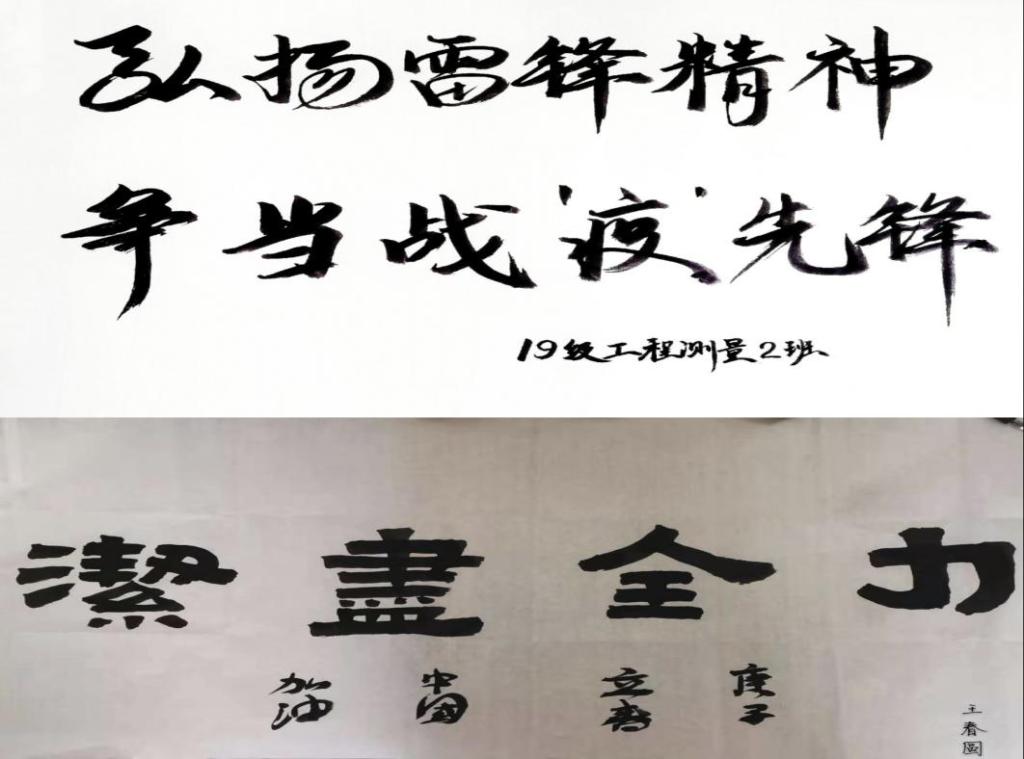 弘扬雷锋精神
争当战‘疫’先锋
19级工程测量2班
潔盡全力
庚子
立春
中國
加油
王春